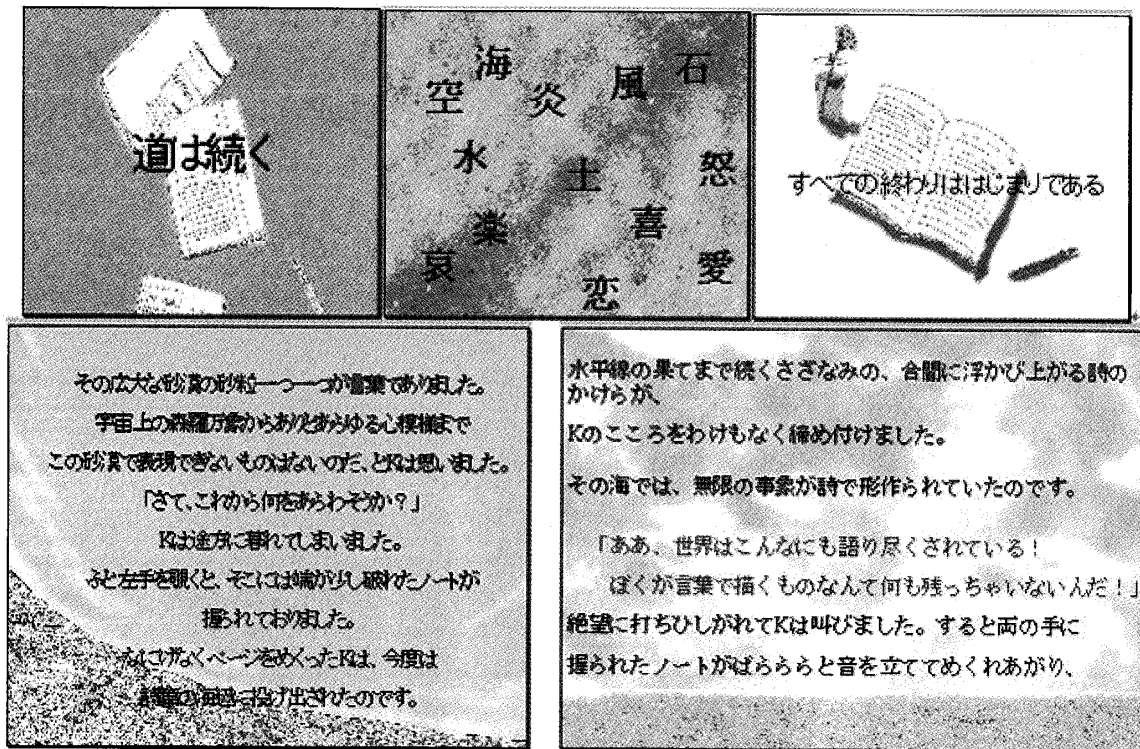 道は続く
海
空
炎
風
石
水
土
怒
楽
喜
哀
恋
愛
すべての終わりははじまりである
その広大な砂漠の砂粒一つ一つが言葉でありました。
宇宙上の森羅万象からありとあらゆる心模様まで
この砂漠で表現できないものはないのだ、とKは思いました。
「さて、これから何をあらわそうか？」
Kは途方に暮れてしまいました。
ふと左手を覗くと、そこには端が少し破れたノートが
握られておりました。
なにげなくページをめくったKは、今度は
の海辺に投げ出されたのです。
水平線の果てまで続くさざなみの、合間に浮かび上がる詩の
かけらが、
Kのこころをわけもなく締め付けました。
その海では、無限の事象が詩で形作られていたのです。
「ああ、世界はこんなにも語り尽くされている！
ぼくが言葉で描くものなんて何も残っちゃいないんだ！」
絶望に打ちひしがれてKは叫びました。すると両の手に
握られたノートがばらららと音を立ててめくれあがり、